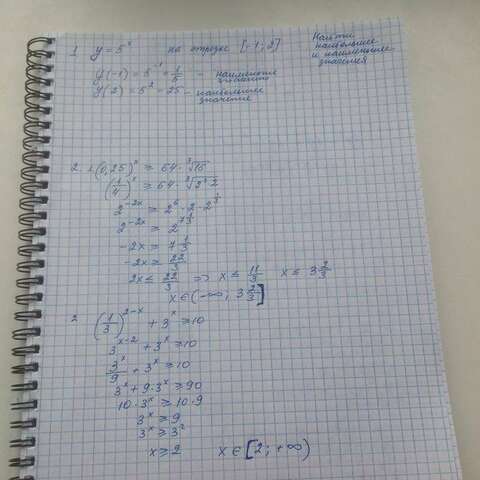 1 y = 5^x на отрезке [-1; 2] Найти наибольшее и наименьшее значения
y(-1) = 5^-1 = 1/5 - наименьшее значение
y(2) = 5^2 = 25 - наибольшее значение
2. 1. (0,25)^x ≥ 64 · ∛16
(1/4)^x ≥ 64 · ∛(2^3 · 2)
2^-2x ≥ 2^6 · 2 · 2^(1/3)
2^-2x ≥ 2^(7 1/3)
-2x ≥ 7 1/3
-2x ≥ 22/3
2x ≤ 22/3 ⇒ x ≤ 11/3 x ≤ 3 2/3
x ∈ (-∞; 3 2/3]
2 (1/3)^(2-x) + 3^x ≥ 10
3^(x-2) + 3^x ≥ 10
3^x/9 + 3^x ≥ 10
3^x + 9 · 3^x ≥ 90
10 · 3^x ≥ 10 · 9
3^x ≥ 9
3^x ≥ 3^2
x ≥ 2 x ∈ [2; +∞)